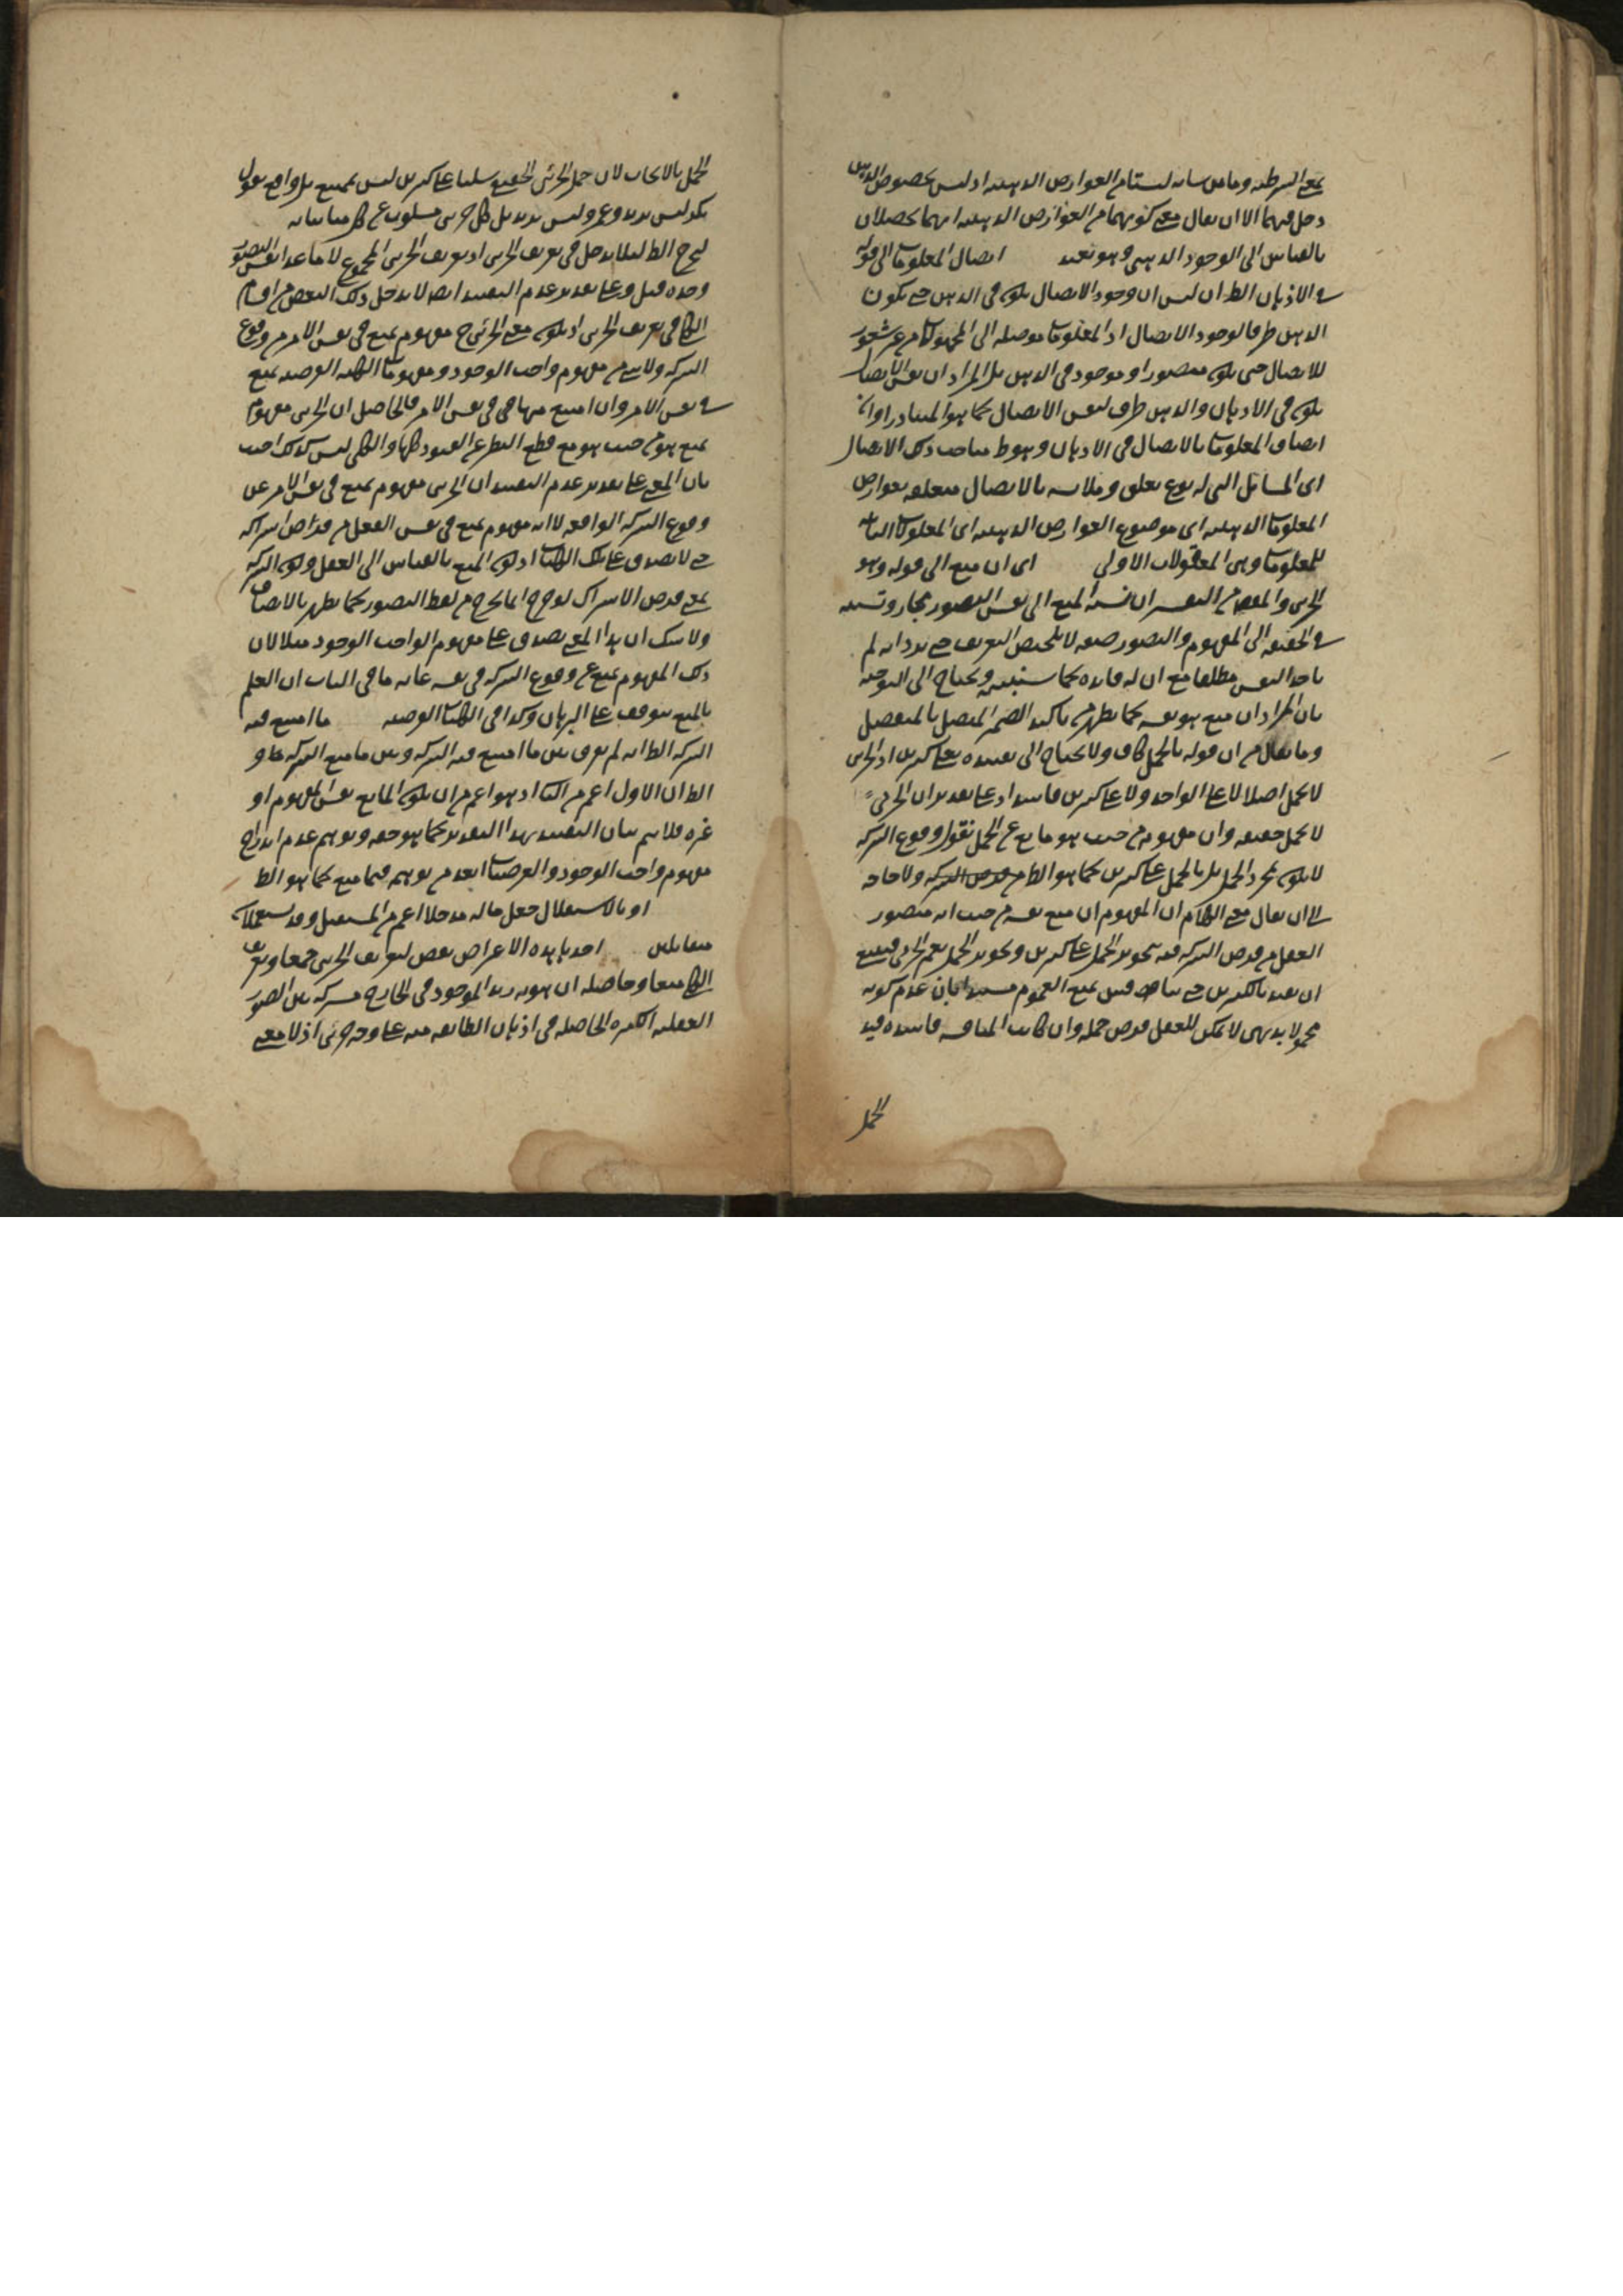 بمعنى الشرطية وما من شانه ليستا من العوارض الذهنية اذ ليس لخصوص الذهن
دخل فيهما الا ان يقال معنى كونهما من العوارض الذهنية انهما يحصلان
بالقياس الى الوجود الذهني وهو بعيد ايصال المعلومات الى قوله
في الاذهان الظ ان ليس ان وجود الايصال يكون في الذهن حتى يكون
الذهن ظرفا لوجود الايصال اذ المعلومات موصلة الى المجهولات من غير شعور
للايصال حتى يكون متصورا وموجودا في الذهن بل المراد ان نفس الايصال
يكون في الاذهان والذهن ظرف لنفس الايصال كما هو المتبادر او ان
اتصاف المعلومات بالايصال في الاذهان وهو ط مباحث ذلك الايصال
اي المسائل التي له نوع تعلق وملابسة بالايصال متعلقة بعوارض
المعلومات الذهنية اي موضوع العوارض الذهنية اي المعلومات الثانية
للمعلومات وهي المعقولات الاولى اي ان منع الى قوله وهو
الجزئي والمقص من التفسير ان نسبة المنع الى نفس التصور مجاز ونسبته
في الحقيقة الى المفهوم والتصور صفة لا تلخيص التعريف حتى يرد انه لم
ياخذ النفس مطلقا مع ان له فائدة كما سنبينه ويحتاج الى التوجيه
بان المراد ان منع هو نفسه كما يظهر من تاكيد الضمير المتصل بالمنفصل
وما يقال من ان قوله بالحمل كاف ولا يحتاج الى تقييده بعلى كثيرين اذ الجزئي
لا يحمل اصلا لا على الواحد ولا على كثيرين فاسد اذ على تقدير ان الجزئي
لا يحمل حقيقة وان مفهومه من حيث هو مانع عن الحمل نقول وقوع الشركة
لا يكون بمجرد الحمل بل بالحمل على كثيرين كما هو الظ من فرض الشركة ولا حاجة
الى ان يقال معنى الكلام ان المفهوم ان منع نفسه من حيث انه متصور
العقل من فرض الشركة فيه بتجويز الحمل على كثيرين وتجويز الحمل يعم الجزئي فينبغي
ان يقيد بالكثيرين حتى يناقض فيمن يمنع العموم مستندا بان عدم كونه
محمولا بديهي لا يمكن للعقل فرض حمله وان كانت المناقشة فاسدة قيد
الحمل
الحمل بالايجاب لان حمل الجزئي الحقيقي سلبا على كثيرين ليس بممتنع بل واقع يقول
بكر ليس بزيد وعمرو ليس بزيد بل كل جزئي مسلوب عن كل مبايناته
ليخرج الظ لئلا يدخل في تعريف الجزئي اذ تعريف الجزئي المجموع لا ما عدا نفس التصور
وحده قيل وعلى تقدير عدم التقييد ايضا لا يدخل ذلك البعض من اقسام
الكلي في تعريف الجزئي اذ يكون معنى الجزئي ح مفهوم يمنع في نفس الامر من وقوع
الشركة ولا شيء من مفهوم واجب الوجود ومفهومات الكلية الفرضية يمنع
في نفس الامر وان امتنع منها هي في نفس الامر فالحاصل ان الجزئي مفهوم
يمنع هو من حيث هو مع قطع النظر عن القيود كلها والكلي ليس كذلك اجيب
بان المعنى على تقدير عدم التقييد ان الجزئي مفهوم يمنع في نفس الامر عن
وقوع الشركة الواقعة لا انه مفهوم يمنع في نفس العقل من فرض اشراكه
حتى لا يصدق على تلك الكليات اذ كون المنع بالقياس الى العقل وكون الشركة
بمعنى فرض الاشتراك لو خرج انما يخرج من لفظ التصور كما يظهر بالانصاف
ولا شك ان هذا المعنى يصدق على مفهوم الواجب الوجود مثلا لان
ذلك المفهوم يمنع عن وقوع الشركة في نفسه غاية ما في الباب ان العلم
بالمنع يتوقف على البرهان وكذا في الكليات الفرضية ما امتنع فيه
الشركة الظ انه لم يفرق بين ما امتنع فيه الشركة وبين ما منع الشركة ط و
الظ ان الاول اعم من الثاني اذ هو اعم من ان يكون المانع نفس المفهوم او
غيره فلا يتم بيان التقييد بهذا التقدير كما هو حقه وتوهم عدم اندراج
مفهوم واجب الوجود والفرضيات ابعد من توهمه فيما منع كما هو الظ
او بالاستقلال جعل ماله مدخلا اعم من المستقل وقد يستعملان
متقابلين احدها هذه الاعتراض نقض لتعريف الجزئي جمعا وتعريف
الكلي منعا وحاصله ان هوية زيد الموجود في الخارج مشتركة بين الصور
العقلية الكثيرة الحاصلة في اذهان الطائفة منه على وجه جزئي اذ لا معنى